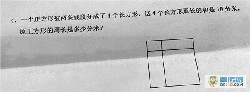 一个正方形被两条线段分成了4个长方形,这4个长方形周长的和是
原正方形的周长是多少分米?